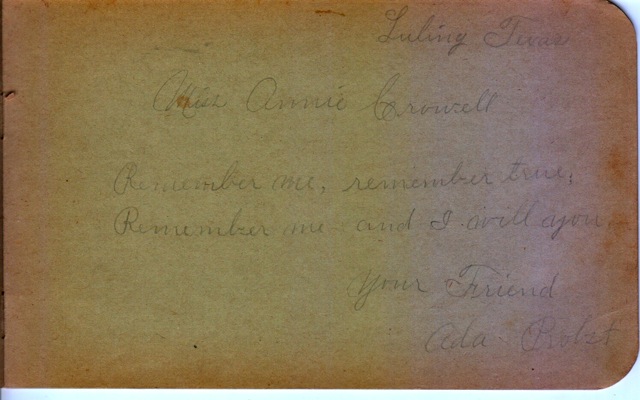 Luling Texas
Miss Annie Crowell
Remember me, remember true,
Remember me and I will you,
Your Friend
Ada Probst